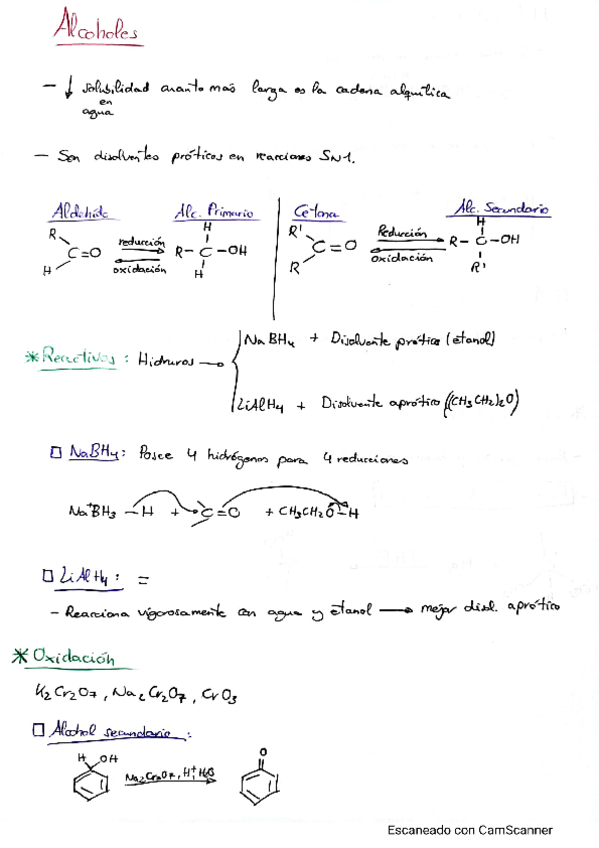 Alcoholes
- ↓ solubilidad cuanto más larga es la cadena alquílica
en
agua
- Son disolventes próticos en reacciones SN1.
Aldehído Alc. Primario Cetona Alc. Secundario
R H C=O reducción oxidación R-C-OH H H
R' R C=O Reducción oxidación R-C-OH H R'
* Reactivos: Hidruros → NaBH4 + Disolvente prótico (etanol)
LiAlH4 + Disolvente aprótico ((CH3CH2)2O)
□ NaBH4: Posee 4 hidrógenos para 4 reducciones
Na+BH3-H + C=O + CH3CH2O-H
□ LiAlH4: =
- Reacciona vigorosamente con agua y etanol → mejor disol. aprótico
* Oxidación
K2Cr2O7, Na2Cr2O7, CrO3
□ Alcohol secundario:
H OH Na2Cr2O7, H+, H2O O
Escaneado con CamScanner